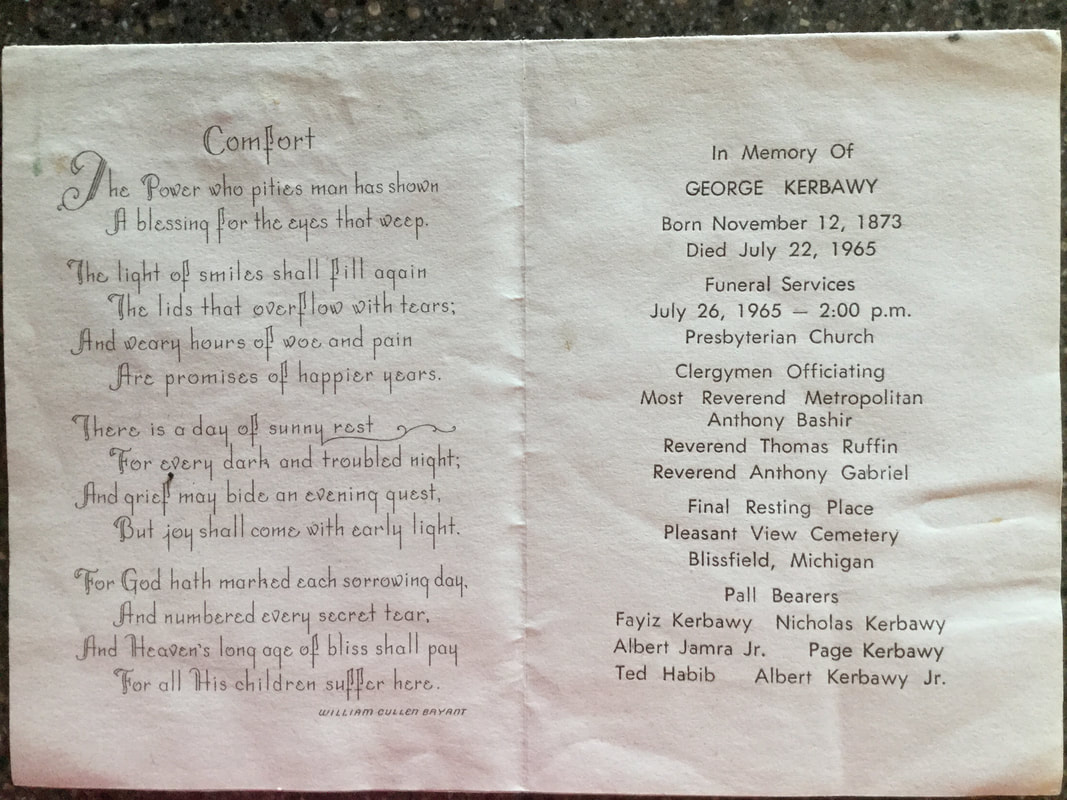 Comfort
The Power who pities man has shown
A blessing for the eyes that weep.
The light of smiles shall fill again
The lids that overflow with tears;
And weary hours of woe and pain
Are promises of happier years.
There is a day of sunny rest
For every dark and troubled night;
And grief may bide an evening guest,
But joy shall come with early light.
For God hath marked each sorrowing day,
And numbered every secret tear,
And Heaven's long age of bliss shall pay
For all His children suffer here.
WILLIAM CULLEN BRYANT
In Memory Of
GEORGE KERBAWY
Born November 12, 1873
Died July 22, 1965
Funeral Services
July 26, 1965 — 2:00 p.m.
Presbyterian Church
Clergymen Officiating
Most Reverend Metropolitan
Anthony Bashir
Reverend Thomas Ruffin
Reverend Anthony Gabriel
Final Resting Place
Pleasant View Cemetery
Blissfield, Michigan
Pall Bearers
Fayiz Kerbawy Nicholas Kerbawy
Albert Jamra Jr. Page Kerbawy
Ted Habib Albert Kerbawy Jr.